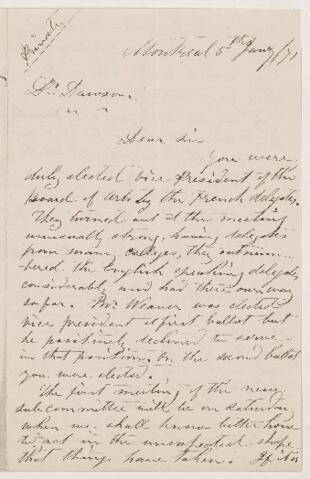 Private
Montreal 5th Jany /71
Dr. Dawson
Dear Sir
You were
duly elected vice President of the
Board of Arts by the French delegates.
They turned out at the meeting
unusually strong, having delegates
from many colleges, they outnum-
bered the English speaking delegates
considerably and had their own way
so far. Mr. Weaver was elected
vice president at first ballot but
he positively declined to serve
in that position. On the second ballot
you were elected.
The first meeting of the new
sub committee will be on Saturday
when we shall know better how
to act in the unexpected shape
that things have taken. If it is